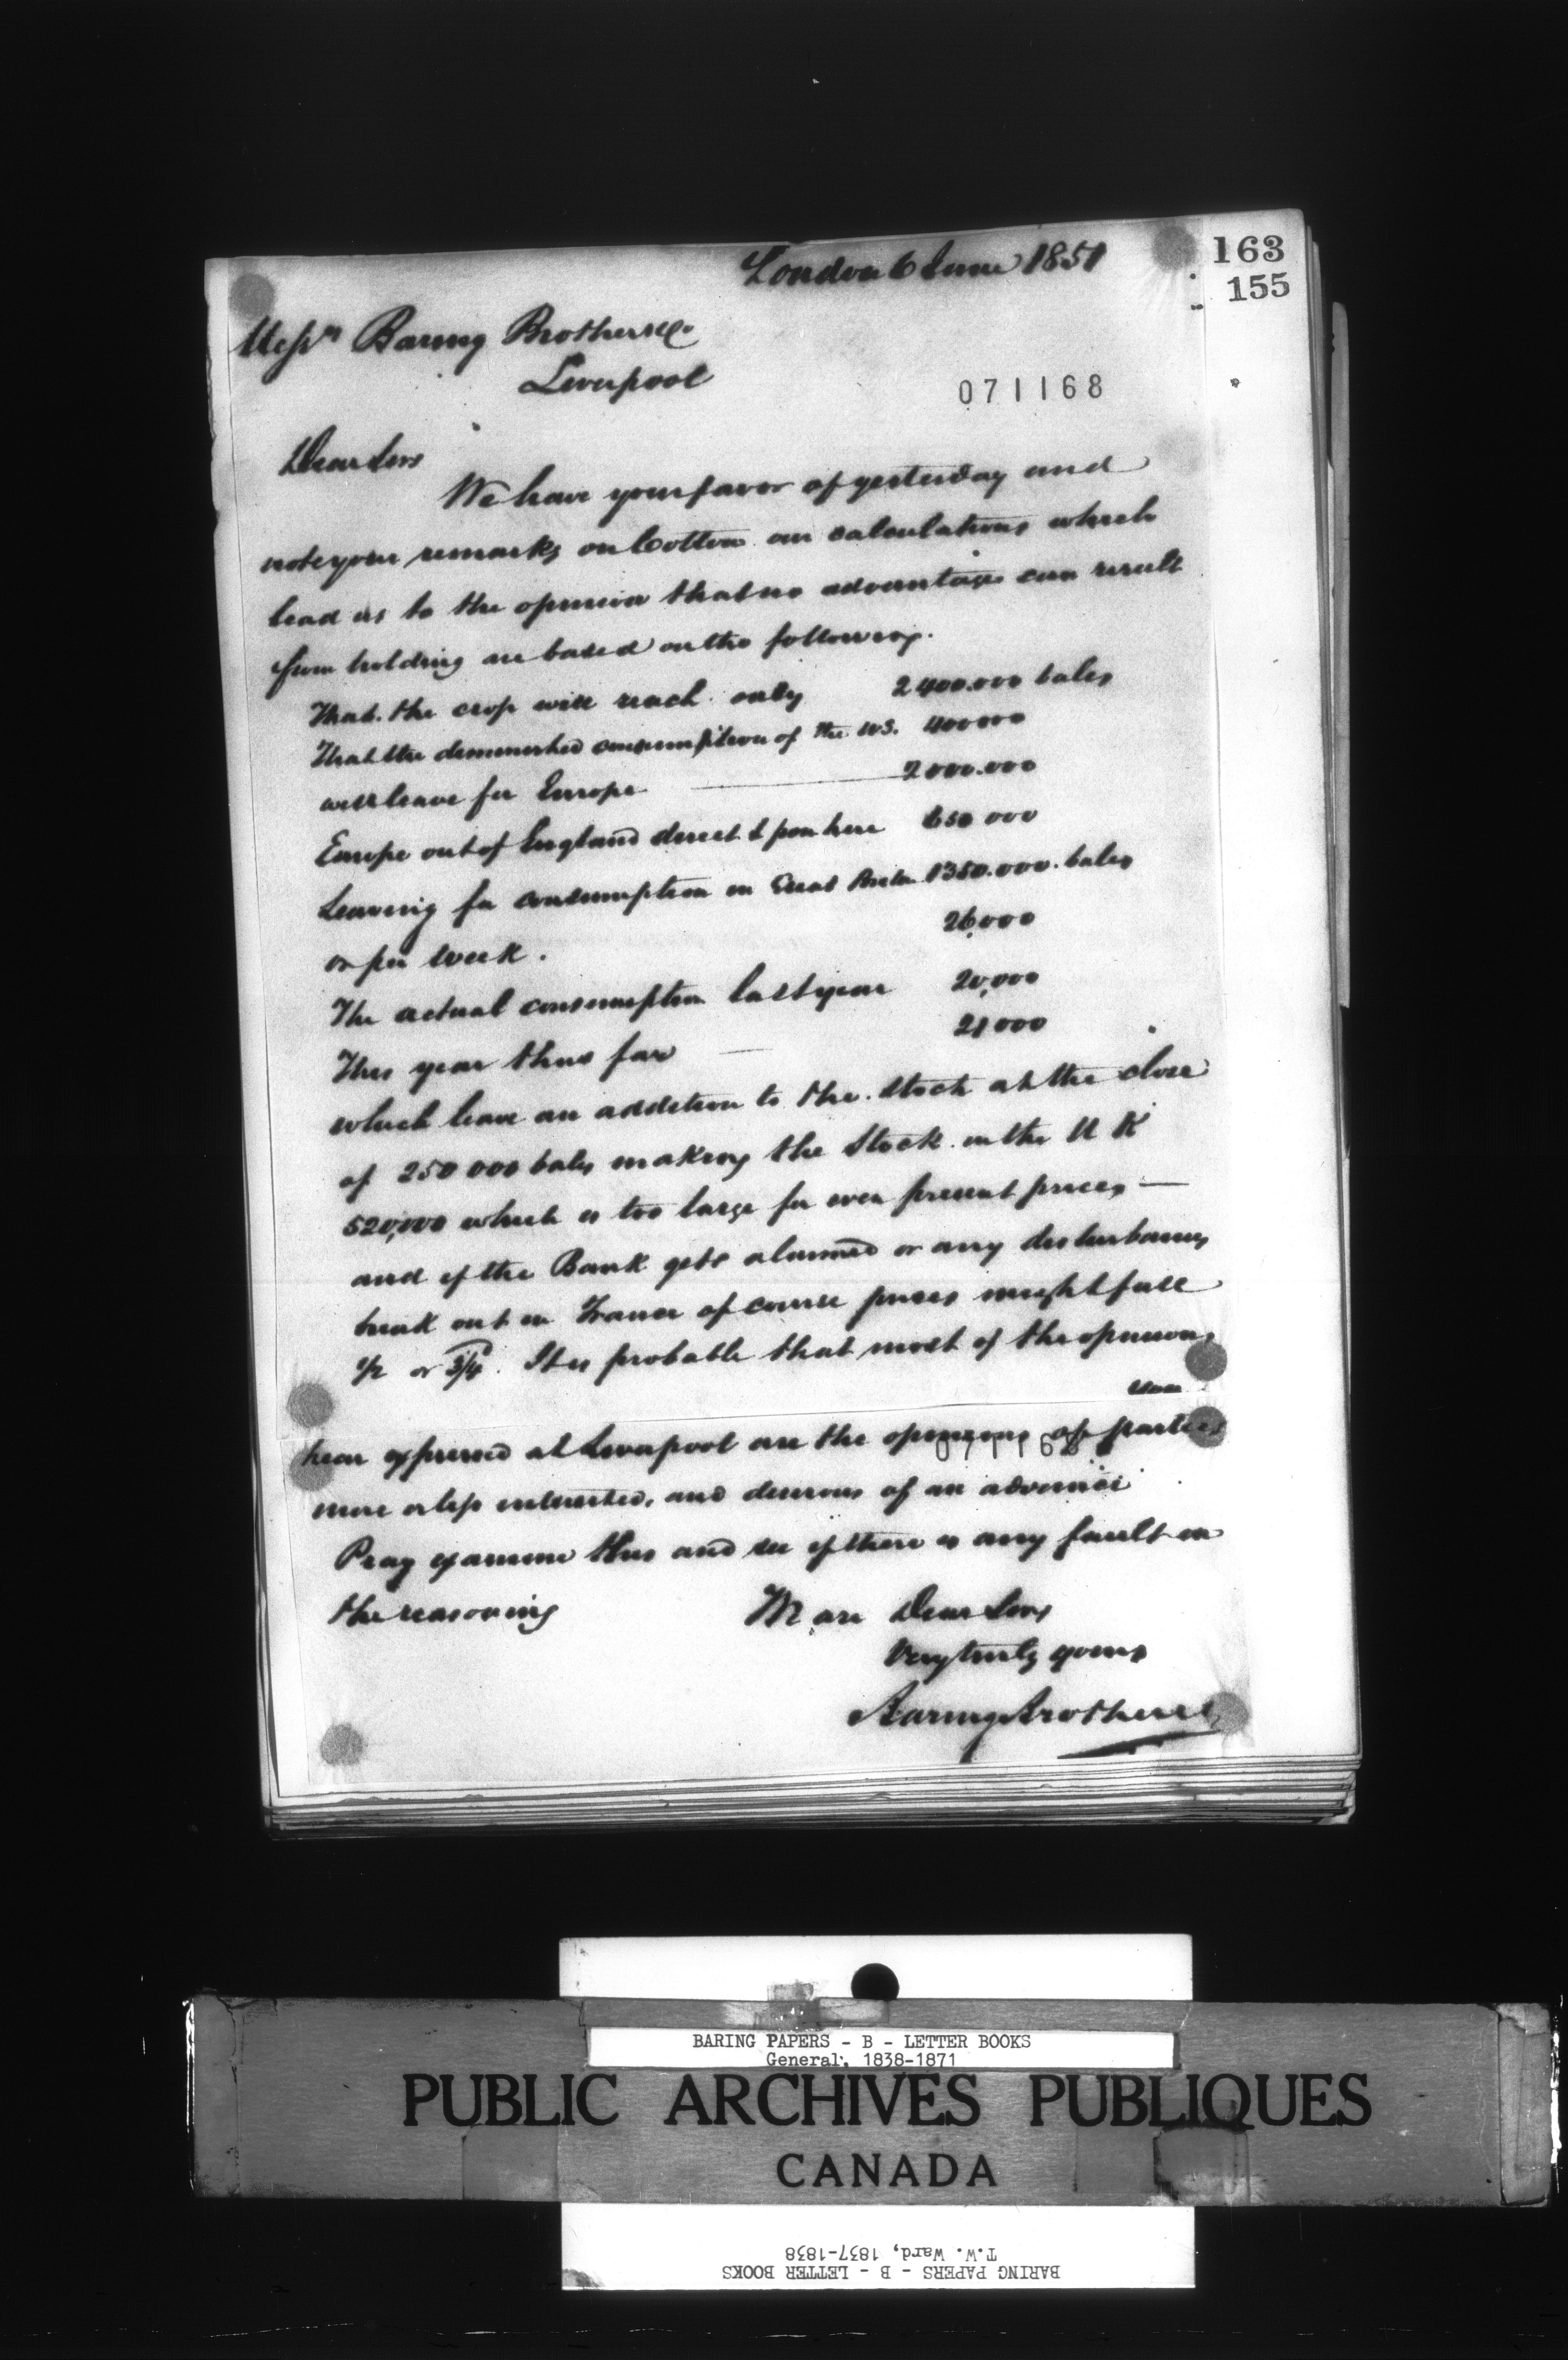 163
155
London 6 June 1851
Messrs Baring Brothers & Co
Liverpool
071168
Dear Sirs
We have your favor of yesterday and
note your remarks on Cotton our calculations which
lead us to the opinion that no advantage can result
from holding are based on the following.
That the crop will reach only 2400.000 bales
That the diminished consumption of the U.S. 400000
will leave for Europe 2000.000
Europe out of England direct & from here 650 000
Leaving for consumption in Great Britn 1350.000 bales
or per week. 26,000
The actual consumption last year 20,000
This year thus far 21000
which leave an addition to the stock at the close
of 250 000 bales making the Stock in the U K
520,000 which is too large for even present prices —
and if the Bank gets alarmed or any disturbances
break out in France of course prices might fall
1/2 or 3/4. It is probable that most of the opinions
you
hear expressed at Liverpool are the opinions of parties
more or less interested, and desirous of an advance
Pray examine this and see if there is any fault in
the reasoning We are Dear Sirs
Very truly yours
Baring Brothers &
BARING PAPERS - B - LETTER BOOKS
General, 1838-1871
PUBLIC ARCHIVES PUBLIQUES
CANADA
BARING PAPERS - B - LETTER BOOKS
T.W. Ward, 1837-1838